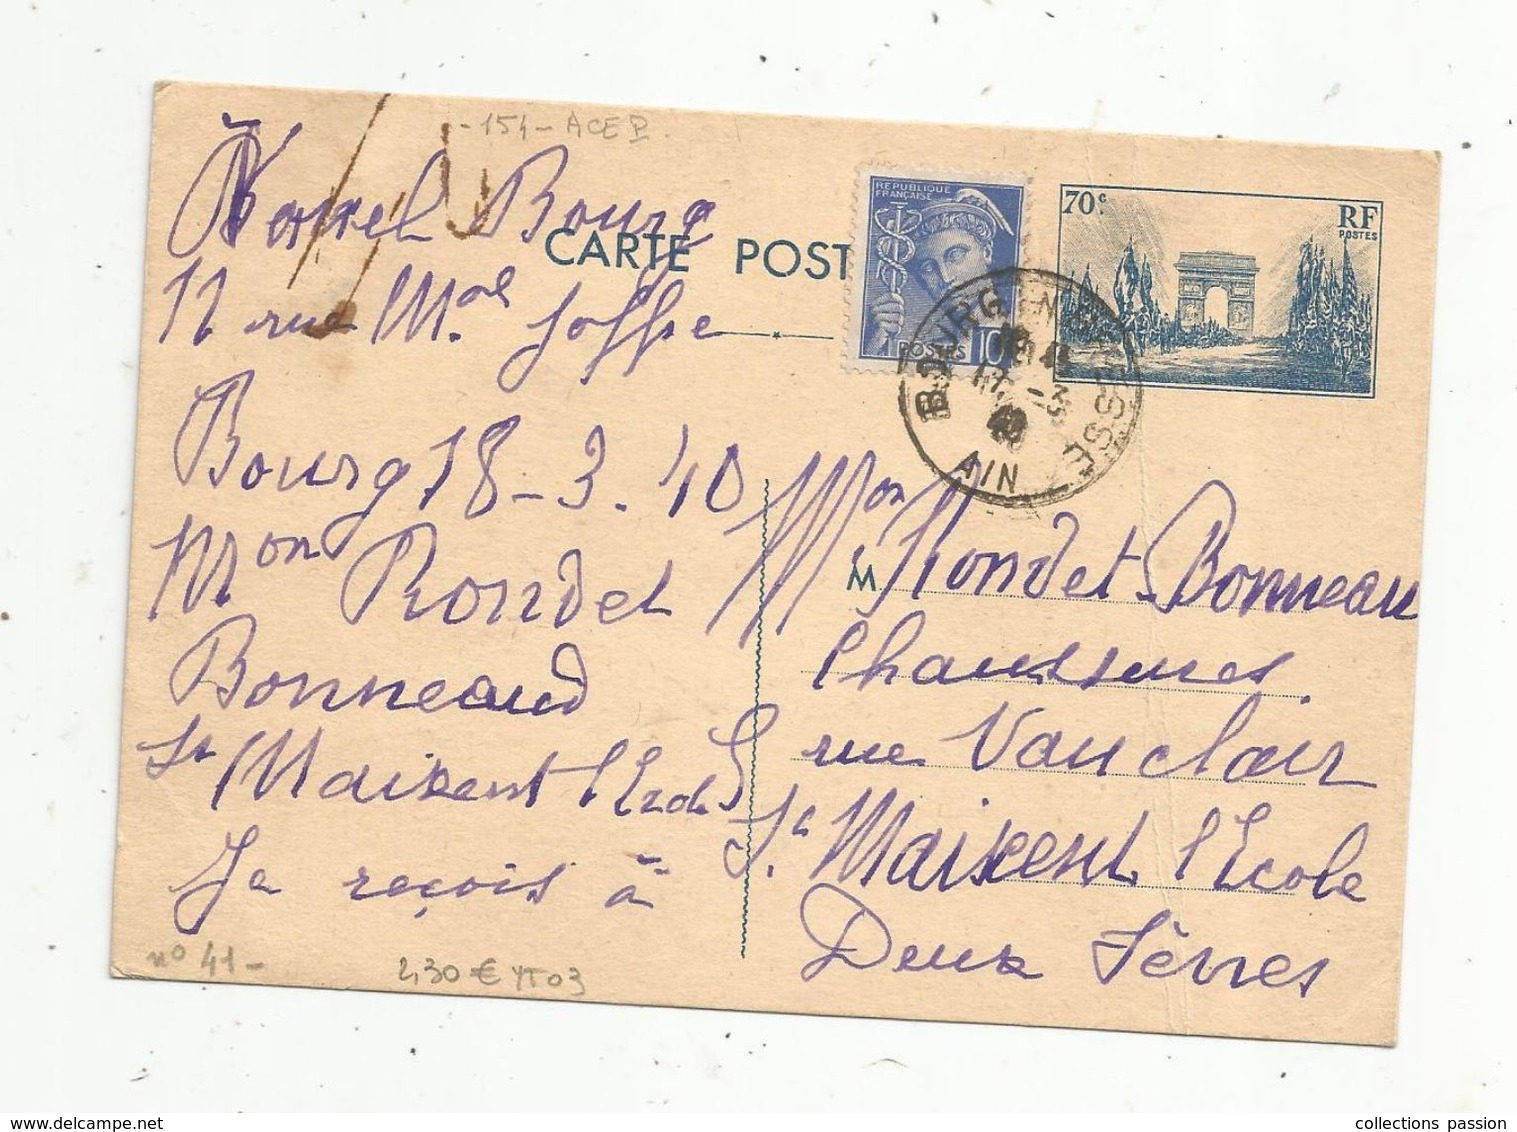 -154- ACEP.
Bourg
11 rue Mal Joffre
Bourg 18-3.40
Mon Rondet
Bonneaud
St Maixent l'Ecole
Je reçois à
no 41-
2,30 € YT03
CARTE POST
REPUBLIQUE
FRANÇAISE
POSTES 10
70c.
RF
POSTES
BOURG-EN-BRESSE
-3
40
AIN
M
Mon Rondet-Bonneau
Chaussures
rue Vauclair
St Maixent l'Ecole
Deux Sèvres
collections passion